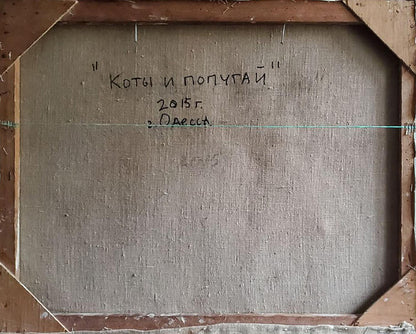 "Коты и попугай"
2015г.
г. Одесса
2015